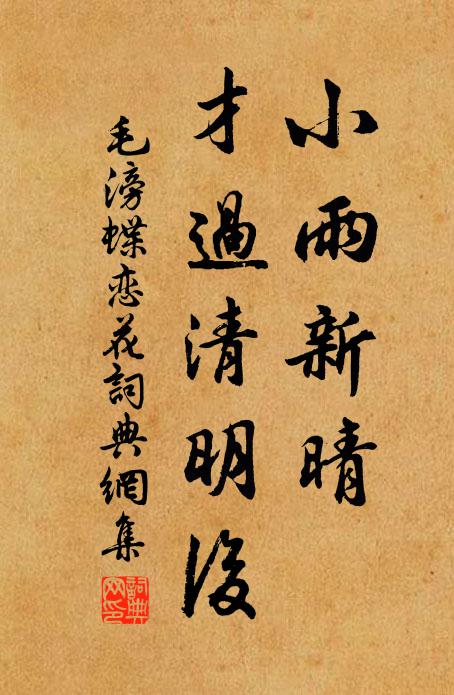 小雨新晴
才過清明後
毛滂蝶恋花詞典網集
詞典网印